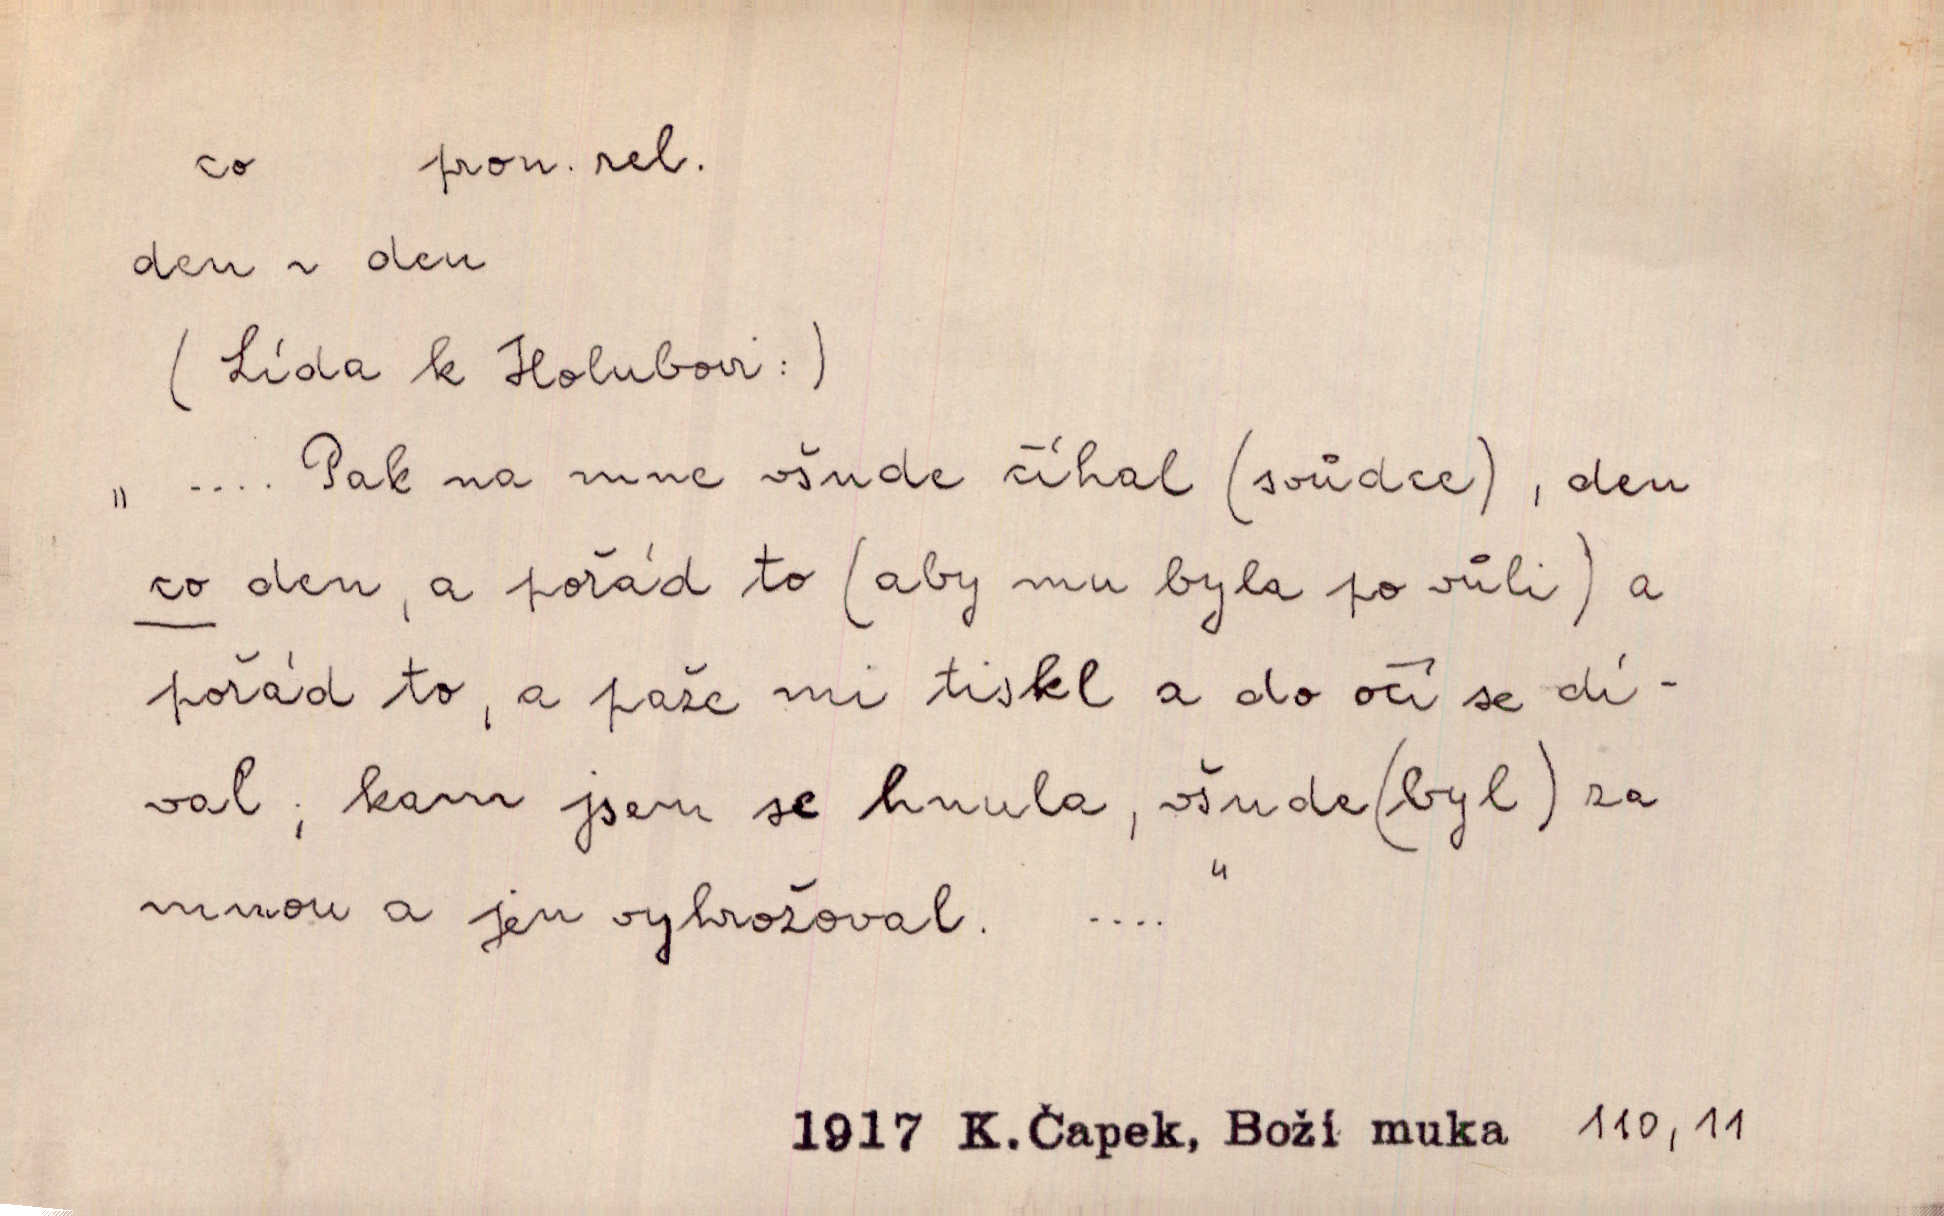 co pron. rel.
den ~ den
( Lída k Holubovi: )
„ .... Pak na mne všude číhal (svůdce), den
co den, a pořád to (aby mu byla po vůli) a
pořád to, a paže mi tiskl a do očí se dí-
val; kam jsem se hnula, všude (byl) za
mnou a jen vyhrožoval. .... "
1917 K. Čapek, Boží muka 110, 11